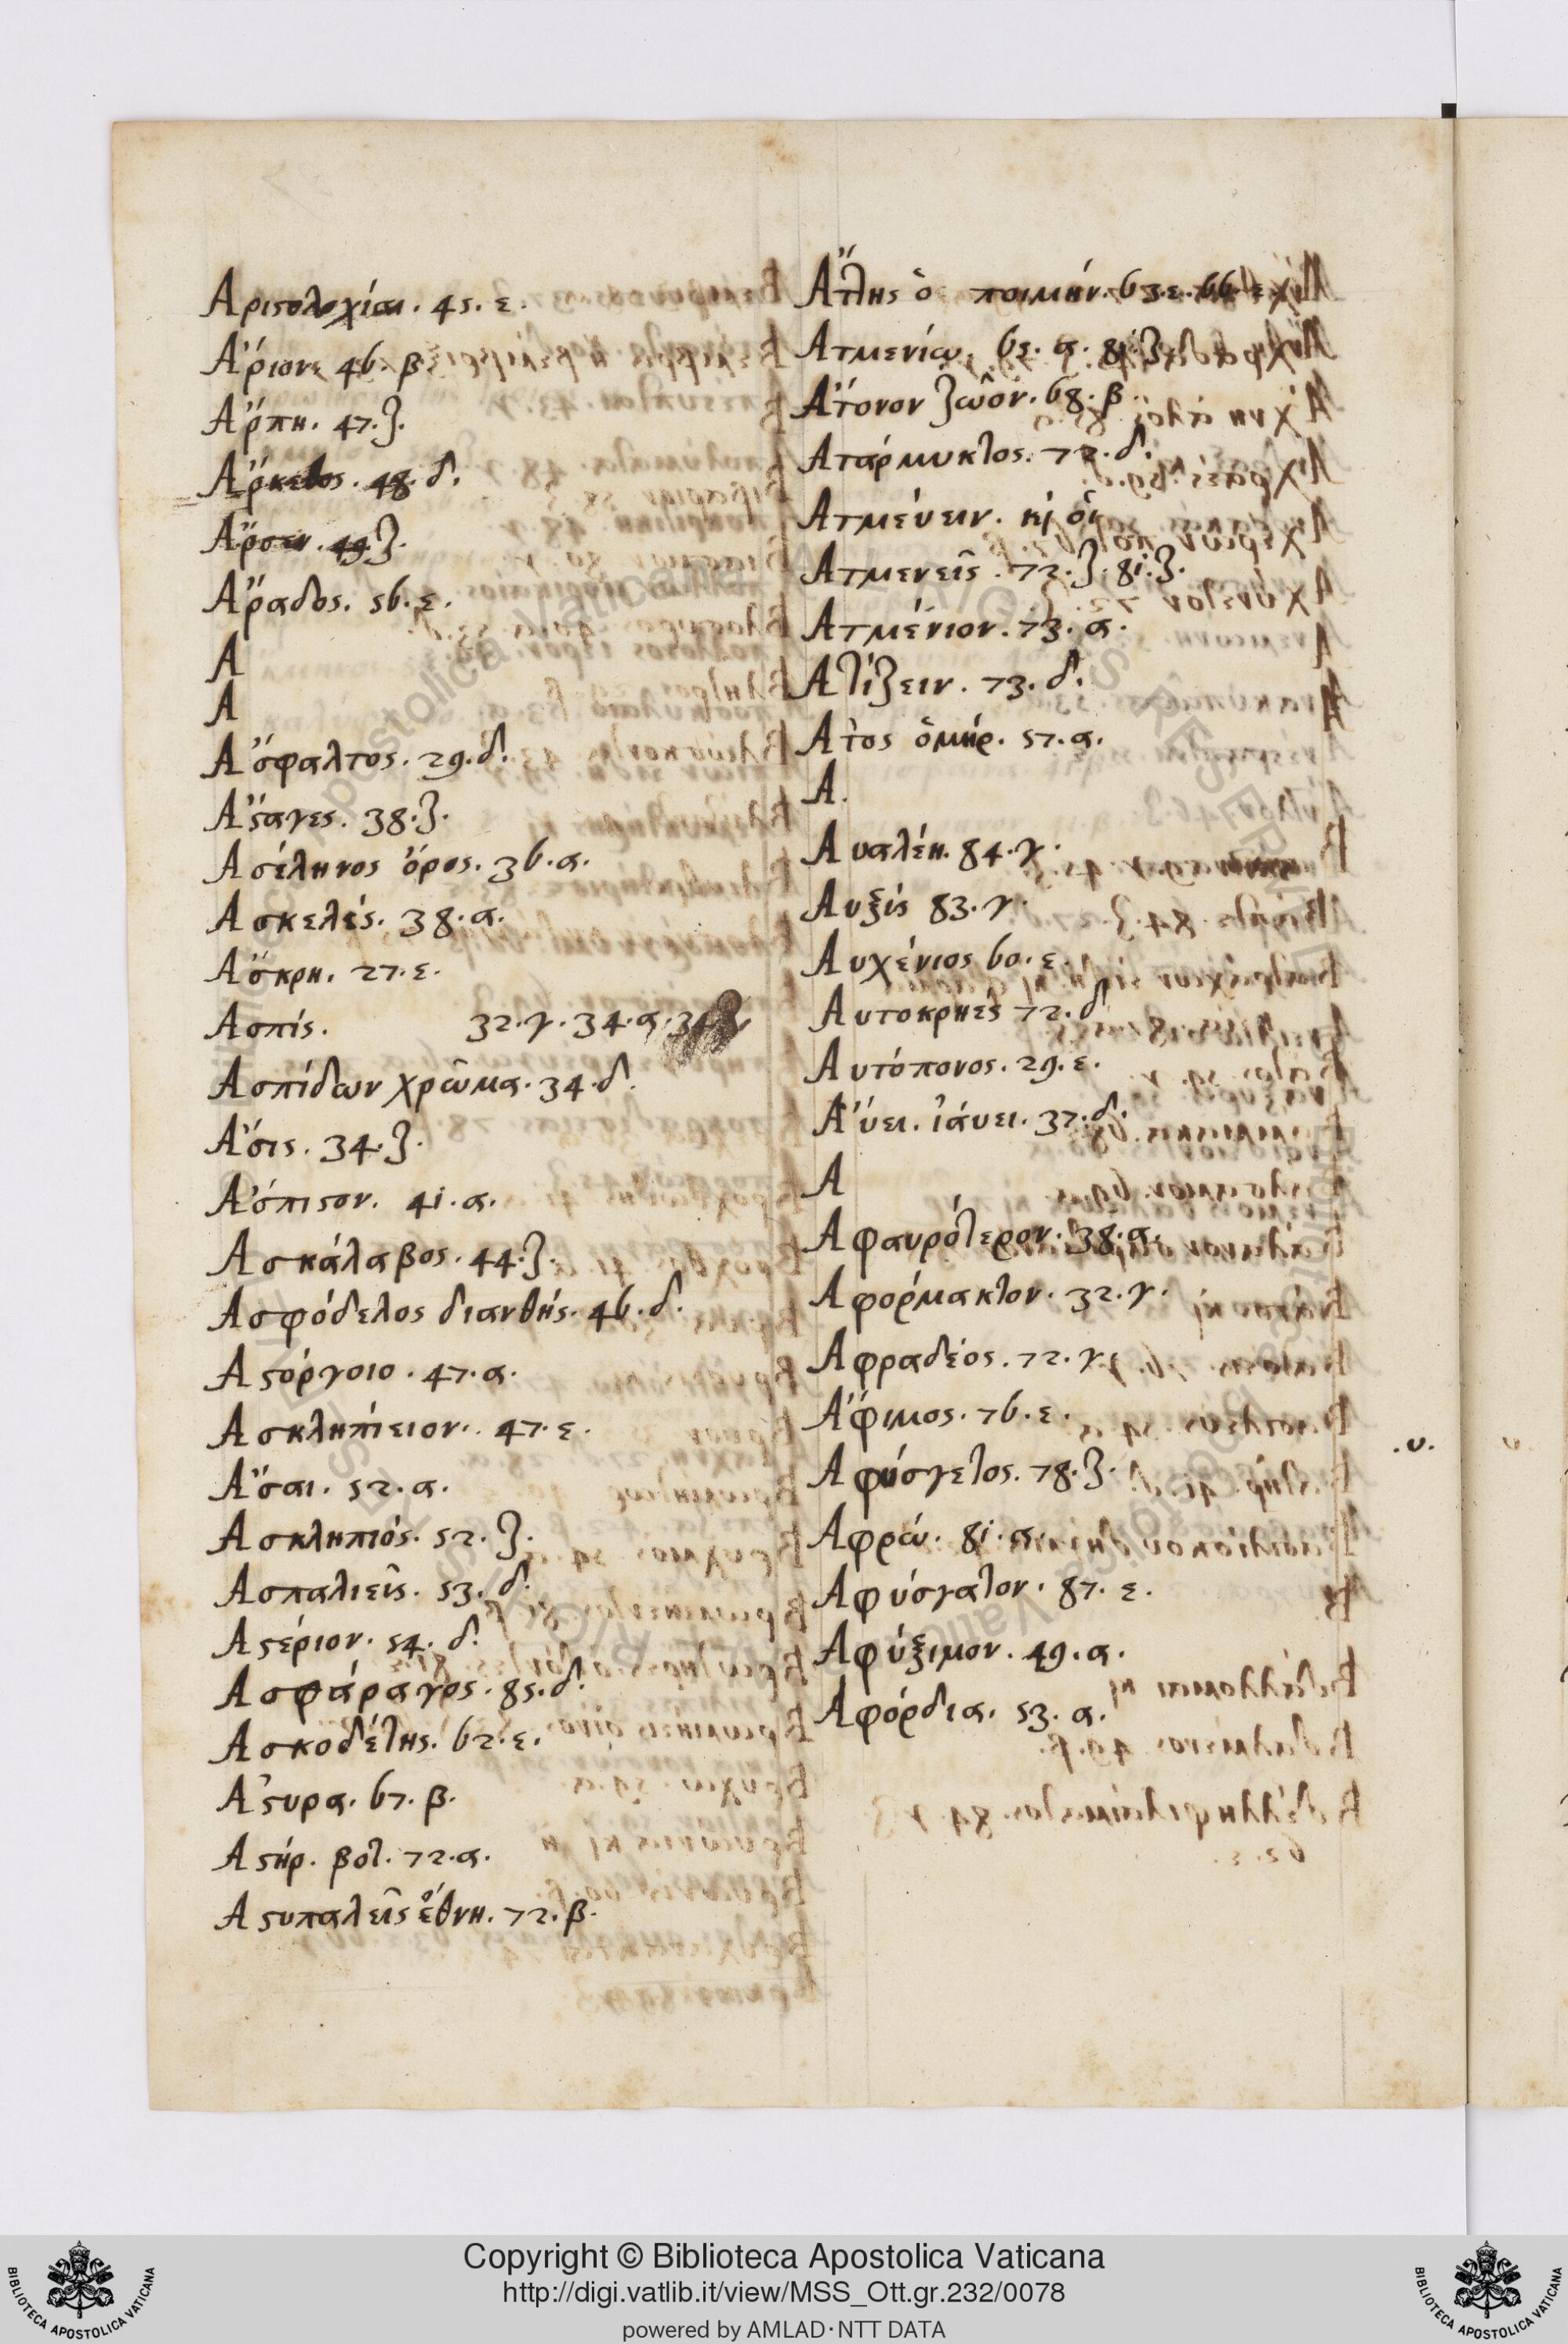 Αριςολοχίαι. 45. ε.
Α'´ριον. 46. β
Α'´ρπη. 47. ζ.
Α'´ρκετος. 48. δ.
Α'´ρσεν. 49 ζ.
Α'´ραδος. 56. ε.
Α
Α
Α'´σφαλτος. 29. δ.
Α'´ςαγες. 38. ζ.
Ασέληνος ὄρος. 36. α.
Ασκελές. 38. α.
Α'´σκρη. 27. ε.
Ασπίς. 32. γ. 34. α.
Ασπίδων χρῶμα. 34. δ.
Α'´σις. 34. ζ.
Α'´σπιςον. 41. α.
Ασκάλαβος. 44. ζ.
Ασφόδελος διανθής. 46. δ.
Αςόργοιο. 47. α.
Ασκληπίειον. 47. ε.
Α'´σαι. 52. α.
Ασκληπιός. 52. ζ.
Ασπαλιεῖς. 53. δ.
Αςέριον. 54. δ.
Ασφάραγος. 85. δ.
Ασκοδέτης. 62. ε.
Α'´ςυρα. 67. β.
Αςήρ. βοτ. 72. α.
Αςυπαλεῖς ἔθνη. 72. β.
Α'´τλης ὁ ποιμήν. 63. ε. 66. ε
Ατμενίω. 65. α. 81. ζ.
Α'´τονον ζῶον. 68. β.
Ατάρμυκτος. 72. δ.
Ατμεύειν. κὶ ὁι
Ατμενεῖς. 72. ζ. 81. ζ.
Ατμένιον. 73. α.
Ατίζειν. 73. δ.
Ατος ὁμήρ. 57. α.
Α.
Αυαλέη. 84. γ.
Αυξίς 83. γ.
Αυχένιος 60. ε.
Αυτοκρηές 72. δ
Αυτόπονος. 29. ε.
Α'´υει. ἰάυει. 37. δ.
Α
Αφαυρότερον. 38. α.
Αφόρμακτον. 32. γ.
Αφραδέος. 72. γ.
Α'´φιμος. 76. ε.
Αφύσγετος. 78. ζ.
Αφρώ. 81. α.
Αφύσγατον. 87. ε.
Αφύξιμον. 49. α.
Αφόρδια. 53. α.
.υ.
Copyright © Biblioteca Apostolica Vaticana
http://digi.vatlib.it/view/MSS_Ott.gr.232/0078
powered by AMLAD·NTT DATA
BIBLIOTECA APOSTOLICA VATICANA
BIBLIOTECA APOSTOLICA VATICANA